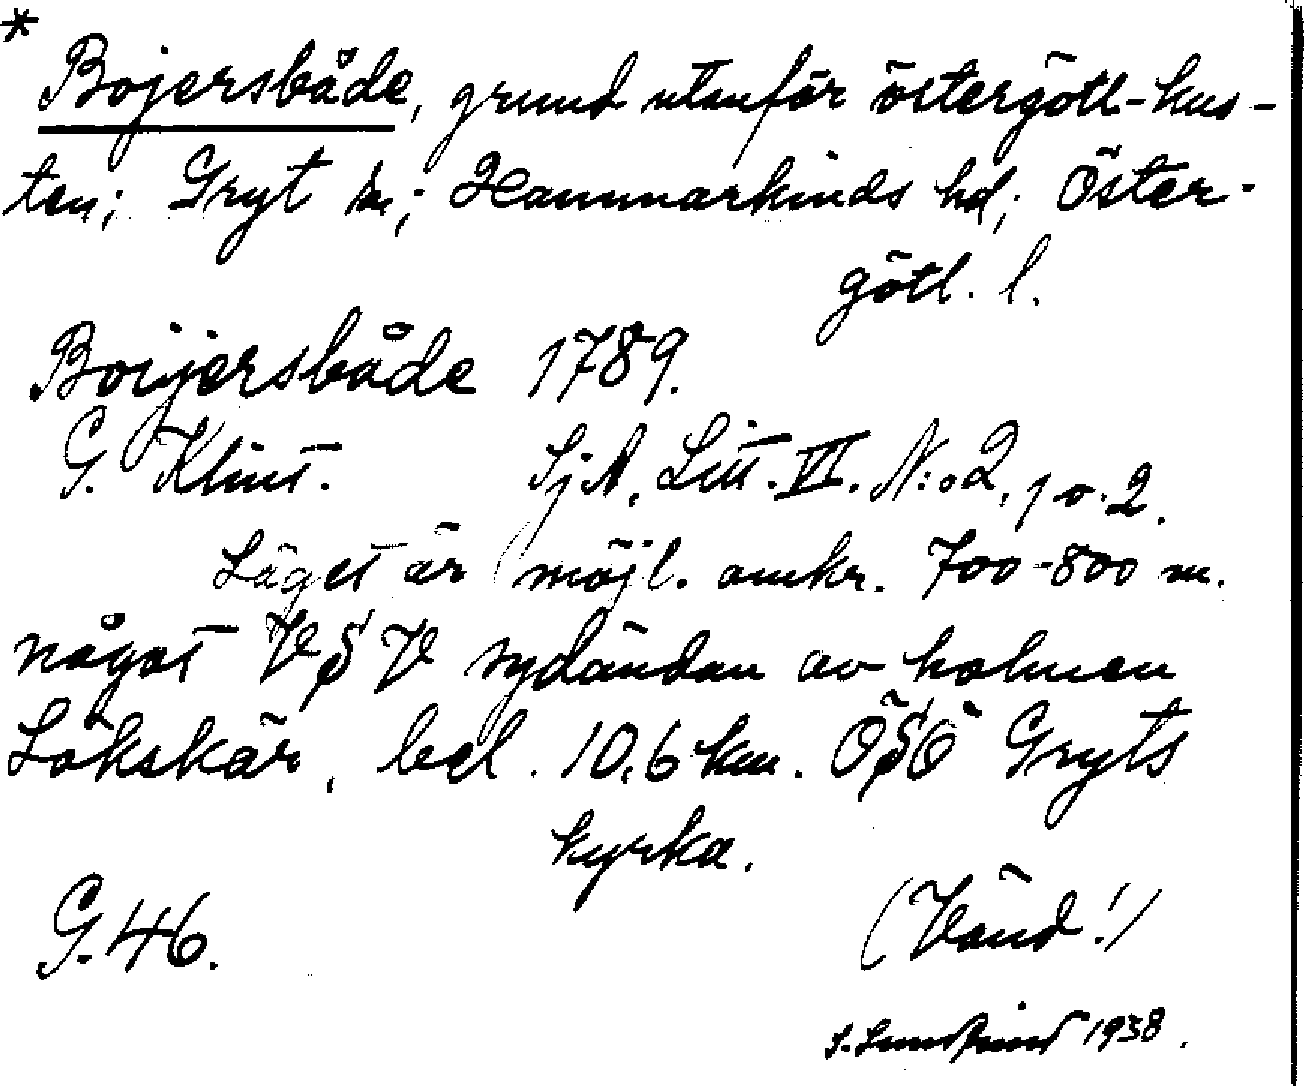 * Bojersbåde, grund utanför östergötl-kus-
ten; Gryt sn; Hammarkinds hd; Öster-
götl. l.
Boijersbåde 1789.
G. Klint. SjA, Litt. VI. N:o 2, 1 o. 2.
Läget är möjl. omkr. 700-800 m.
något VSV sydändan av holmen
Lökskär, bel. 10,6 km. ÖSÖ Gryts
kyrka.
G. 46. (Vänd!)
1938.